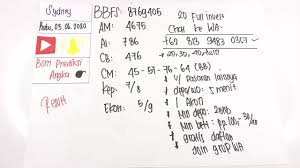 Sydney
Rabu, 03.06.2020
Bom Prediksi
Angka
BBFS: 8769405
AM: 4675
AI: 786
CB: 476
CM: 45-57-76-64 (BB)
Kep: 7/8
Ekor: 5/9
20 Full invest
Chat ke WA:
+62 813 9483 0307
* 20, 30, 40, kuat
* 11 pasaran lainnya
* depo/WD: 5 menit
* 1 Akun
* Min depo: 20rb
* Min bett: Rp 100,-
* gratis daftar
dan grup WA